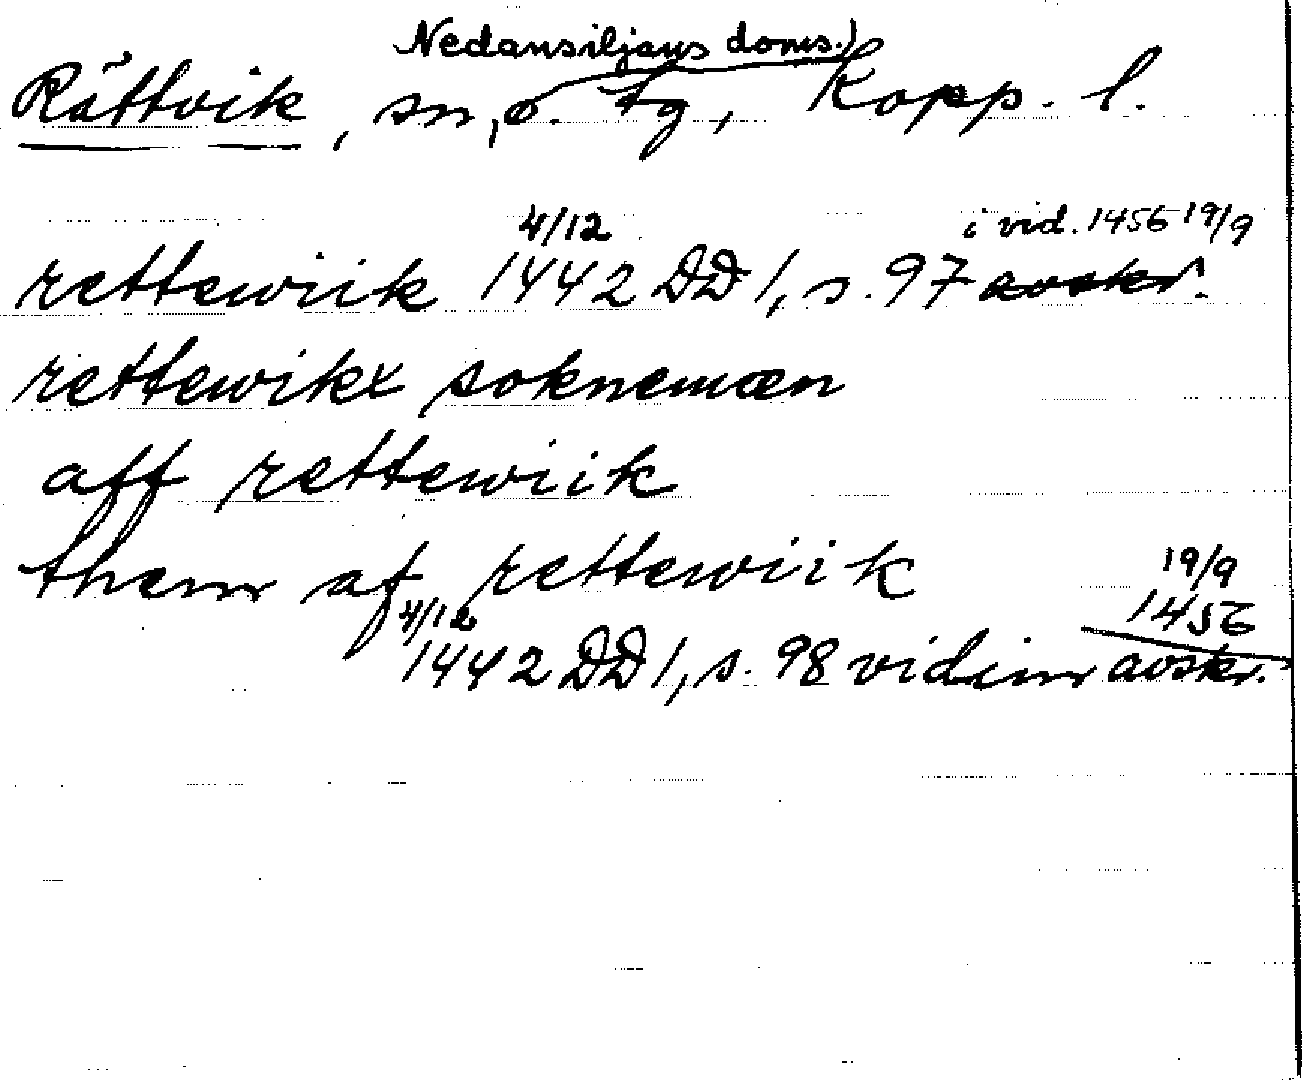 Nedansiljans doms.)
Rättvik, sn, o. tg, Kopp. l.
4/12 i vid. 1456 19/9
rettewiik 1442 DD 1, s. 97 avskr.
rettewikx soknemæn
aff rettewiik
them af rettewiik 19/9
4/12 1456
1442 DD 1, s. 98 vidim avskr.